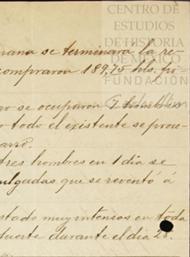 CENTRO DE
ESTUDIOS
DE HISTORIA
DE MÉXICO
FUNDACIÓN
mana se terminará la re-
compraron 189,75 hls.
se ocuparon 2 hombres
todo el existente se procu-
tres hombres en 1 dia se
pulgadas que se reventó á
stado muy intenso en toda
fuerte durante el día 28.